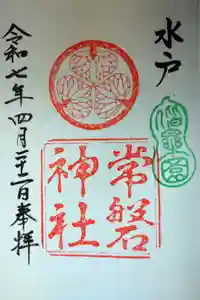 水戸
偕楽園
常磐
神社
令和七年四月二十一日奉拝